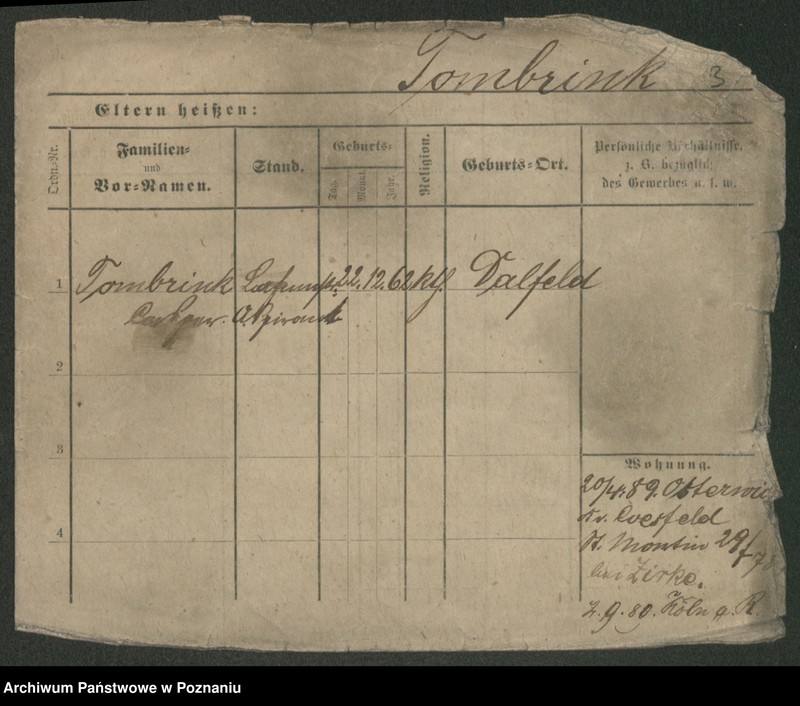 Tombrink 3
Eltern heißen:
Ordn.-Nr.
Familien-
und
Vor-Namen.
Stand.
Geburts-
Tag.
Monat.
Jahr.
Religion.
Geburts-Ort.
Persönliche Verhältnisse,
z. B. bezüglich
des Gewerbes u. s. w.
1 Tombrink 22. 12. 62 kth. Dalfeld
Aspirant
2
3
4
Wohnung.
20/4. 89. Osterwick
Kr. Coesfeld
St. Martin 29
bei Zirke.
2. 9. 89. Köln a. R.
Archiwum Państwowe w Poznaniu